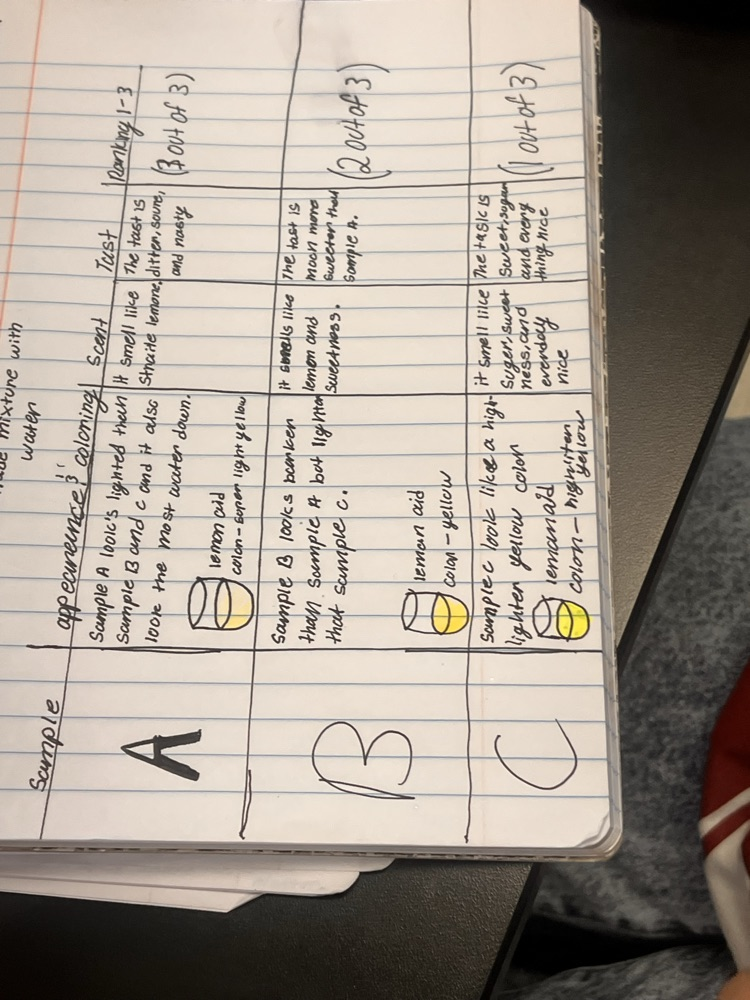 mixture with
water
Sample
appearance & coloring
Scent
Tast
Ranking 1-3
A
Sample A look's lighted than
sample B and C and it also
look the most water down.
lemon aid
color - super light yellow
It smell like
Straite lemone,
The tast is
ditten, soure,
and nasty
(3 out of 3)
B
Sample B looks
than sample A but lighter
that sample C.
lemon aid
color - yellow
it smells like
lemon and
sweetness.
The tast is
much more
sweeter than
sample A.
(2 out of 3)
C
sample C look like a high-
lighter yellow color
lemanaid
color - highliten
yellow
it smell like
suger, sweet
ness, and
everyday
nice
The task is
sweet, sugar
and every
thing nice
(1 out of 3)